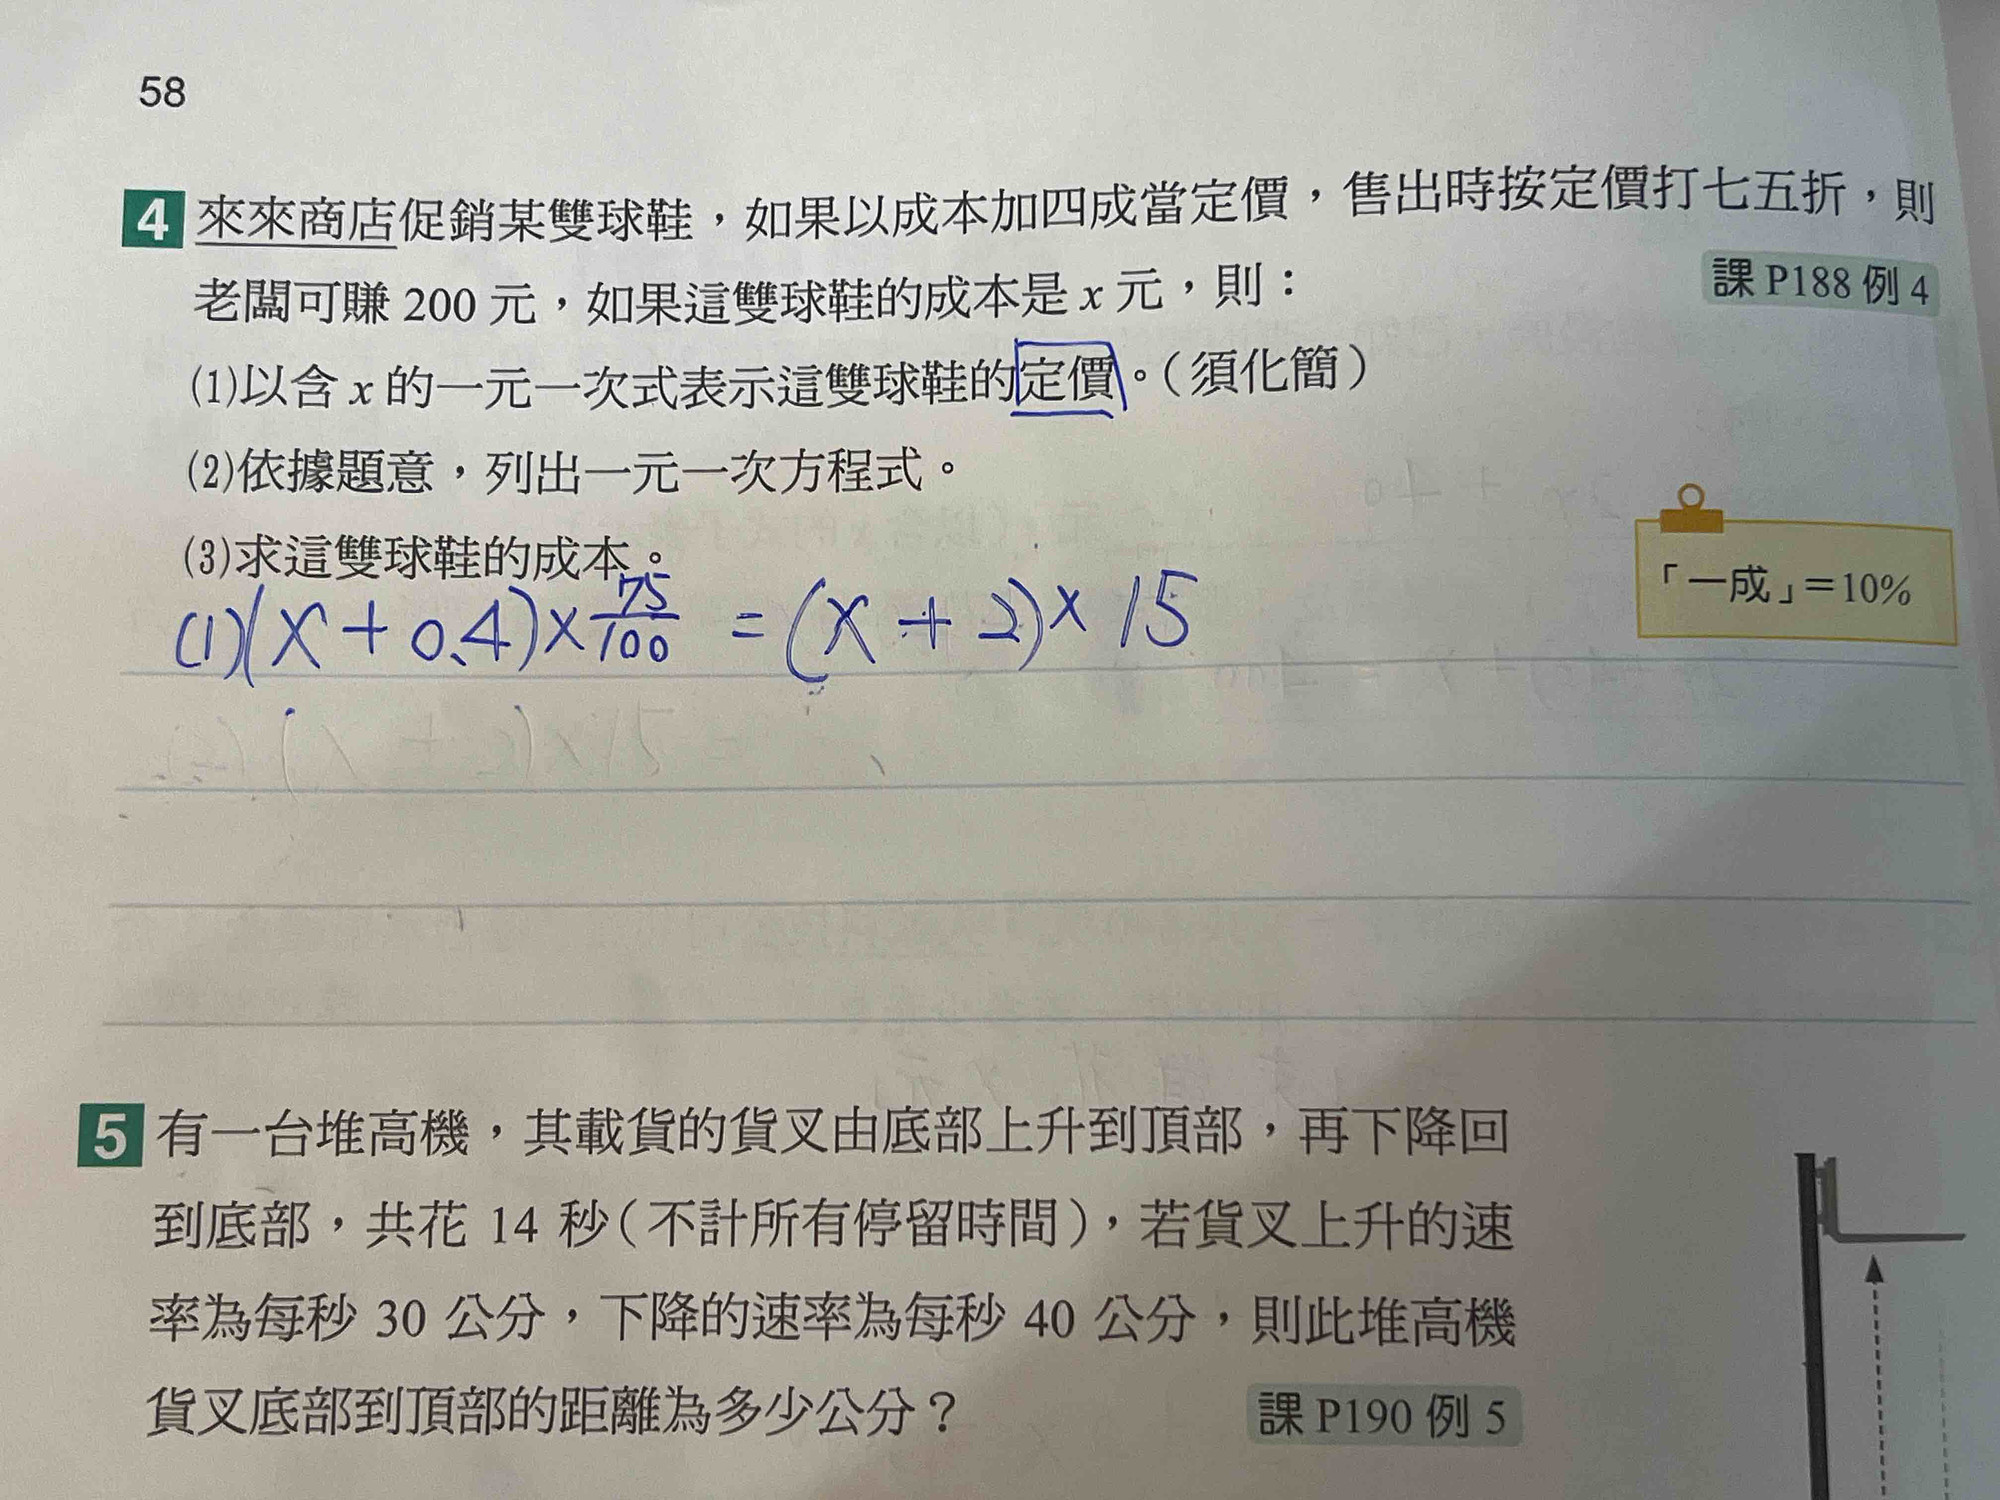 58
4 來來商店促銷某雙球鞋，如果以成本加四成當定價，售出時按定價打七五折，則
老闆可賺 200 元，如果這雙球鞋的成本是 x 元，則：
課 P188 例 4
(1)以含 x 的一元一次式表示這雙球鞋的定價。（須化簡）
(2)依據題意，列出一元一次方程式。
(3)求這雙球鞋的成本。
「一成」＝10%
(1)(x+0.4)×75/100 = (x+2)×15
5 有一台堆高機，其載貨的貨叉由底部上升到頂部，再下降回
到底部，共花 14 秒（不計所有停留時間），若貨叉上升的速
率為每秒 30 公分，下降的速率為每秒 40 公分，則此堆高機
貨叉底部到頂部的距離為多少公分？
課 P190 例 5